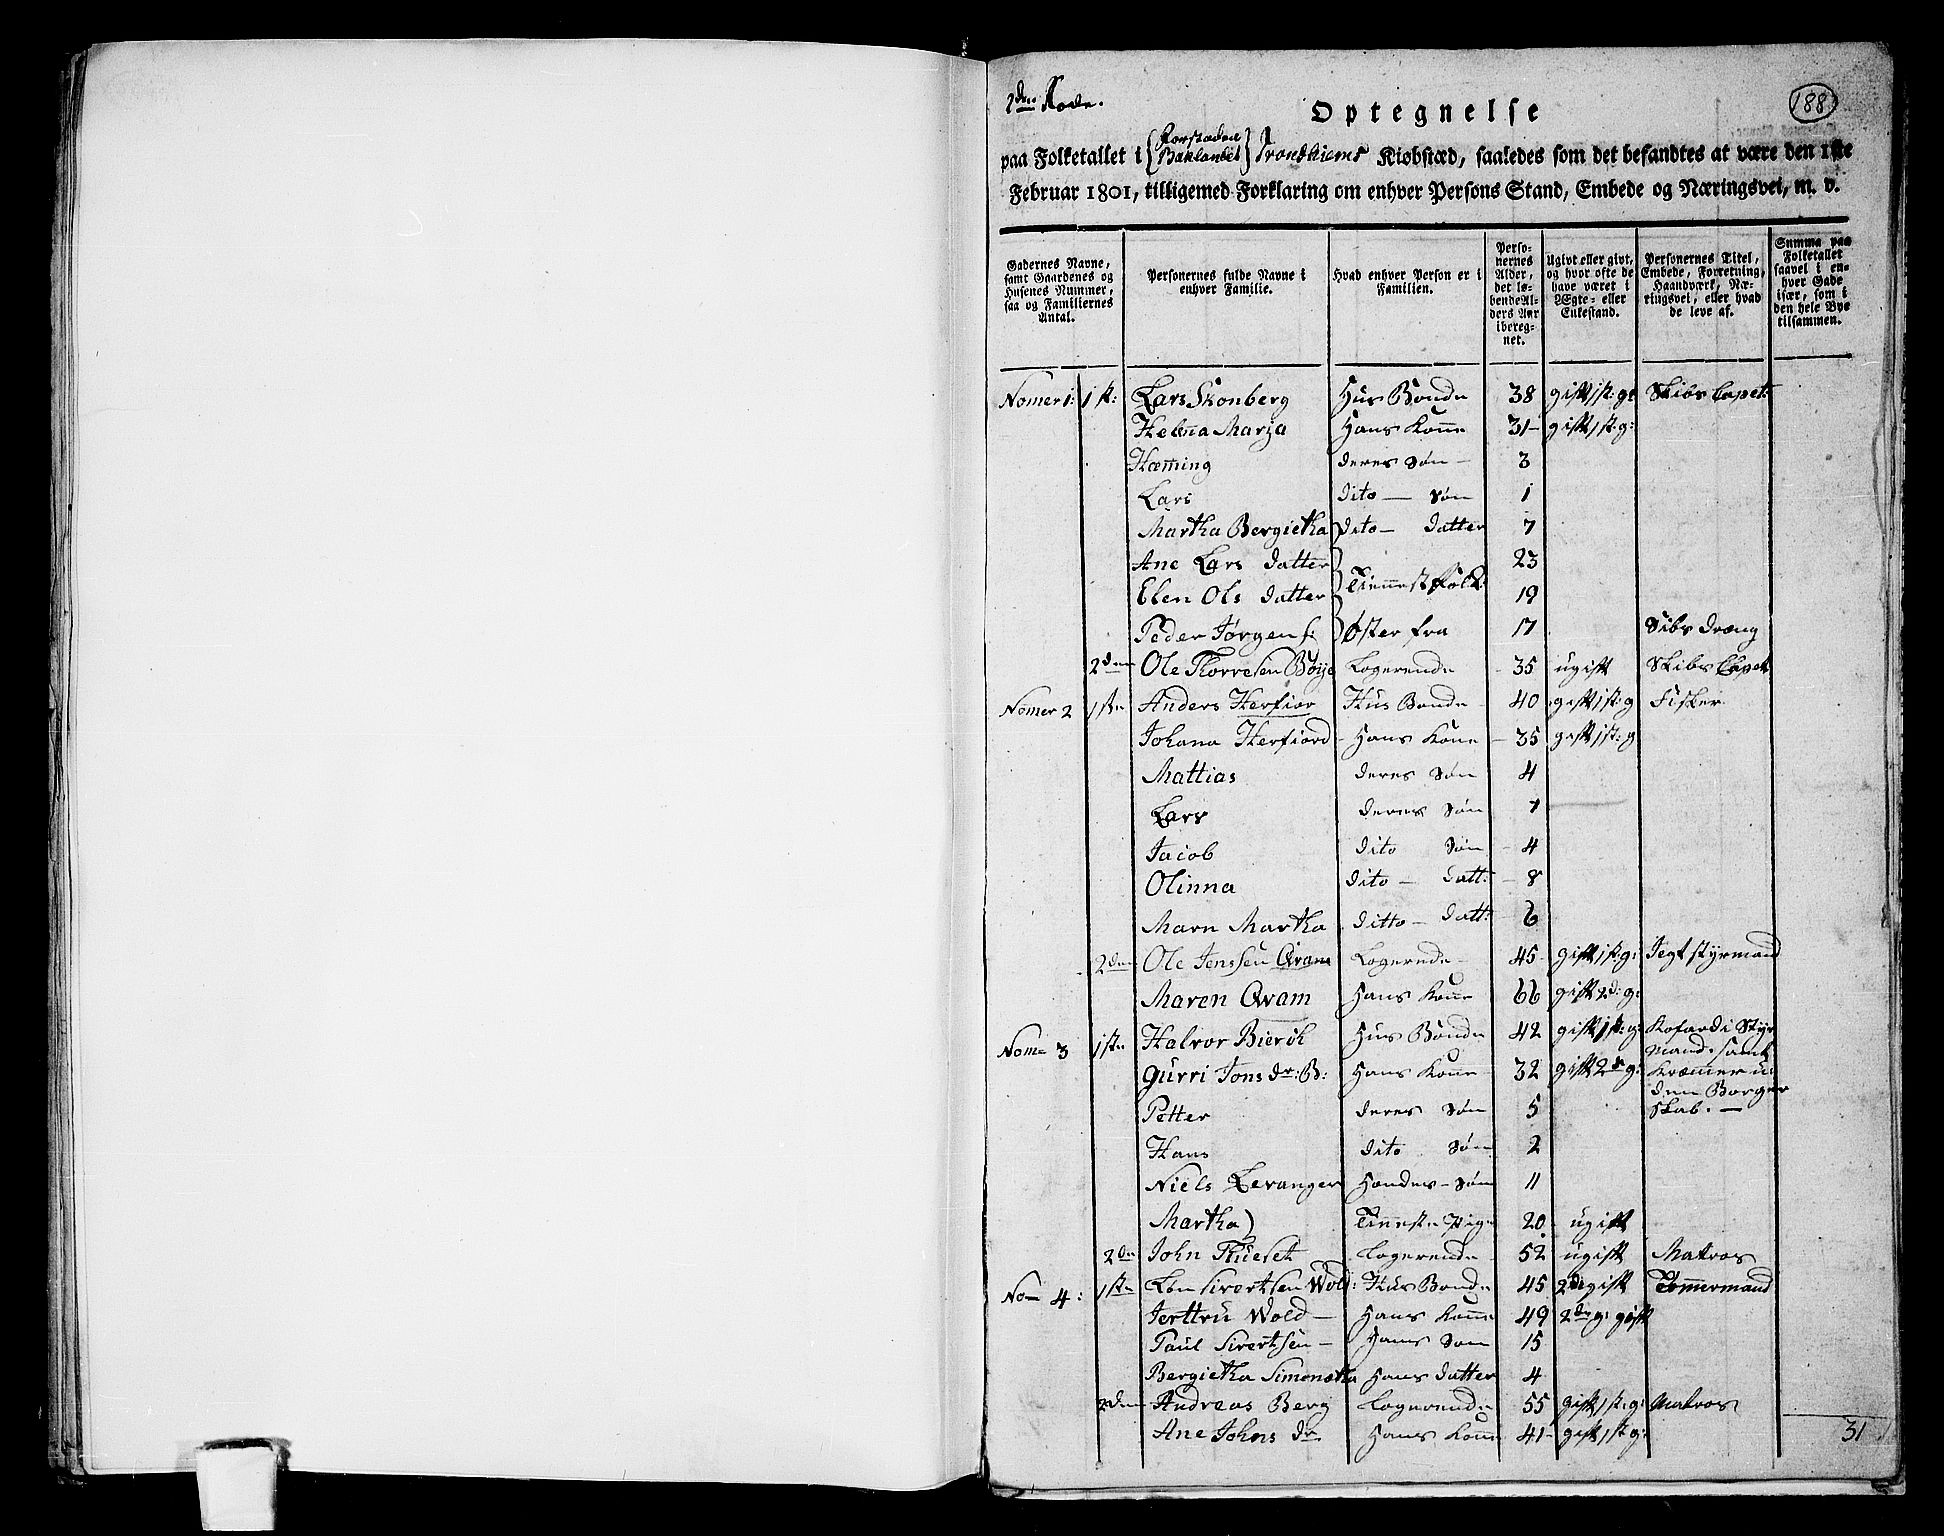 2den Rode.
188
Optegnelse
paa Folketallet i {Forstaden Baklandet} Trondhiems Kiøbstæd, saaledes som det befandtes at være den 1ste
Februar 1801, tilligemed Forklaring om enhver Persons Stand, Embede og Næringsvei, m. v.
Gadernes Navne, samt Gaardenes og Husenes Nummer, saa og Familiernes Antal.
Personernes fulde Navne i enhver Familie.
Hvad enhver Person er i Familien.
Personernes Alder, det løbende Alders Aar iberegnet.
Ugivt eller givt, og hvor ofte de have været i Ægte- eller Enkestand.
Personernes Titel, Embede, Forretning, Haandværk, Næringsvei, eller hvad de leve af.
Summa paa Folketallet saavel i enhver Gade især, som i den hele Bye tilsammen.
Nomer 1: 1st: Lars Skonberg Hus Bonde 38 gift 1st: g: Skibs Capet:
Helena Marja Hans Kone 31 gift 1st: g:
Hæming deres søn 3
Lars dito søn 1
Martha Bergietha dito datter 7
Ane Lars datter Tiennestfolk: 23
Elen Ols datter 19
Peder Jørgen s: Øster fra 17 Sibs dræng
2den Ole Thorresen Bøye Logerende 35 ugift Skibs Capet
Nomer 2 1ste Anders Herfior Hus Bonde 40 gift 1st: g Fisker
Johana Herfiord Hans Kone 35 gift 1st: g
Mattias deres søn 4
Lars deres søn 7
Jacob dito søn 4
Olinna dito datt: 8
Marn Martha ditto datt: 6
2den Ole Jenssen Qvam Logerende 45 gift 1st: g: Jegt styrmand
Maren Qvam Hans Kone 66 gift 2d: g:
Nom 3 1ste Halvor Bierök Hus Bonde 42 gift 1st: g: Kofardi Styr
mand. samt
Gurri Jons dr: B: Hans Kone 32 gift 2d g: Kræmer u:
den Borger
Petter deres søn 5 skab.
Hans dito søn 2
Niels Levanger Hendes søn 11
Martha Tieneste Pige 20 ugift
2den John Thueset Logerende 52 ugift Matros
No 4: 1ste Lon Sivertsen Wold: Hus Bonde 45 2d gift Tømermand
Jerttru Wold Hans Kone 49 2den g: gift
Paul Sivertsen Hans søn 15
Bergietha Simonetha Hans datter 4
2den Andreas Berg Logerende 55 gift 1st: g: Matros
Ane Johns dr Hans Kone 41 gift 1st g:
31